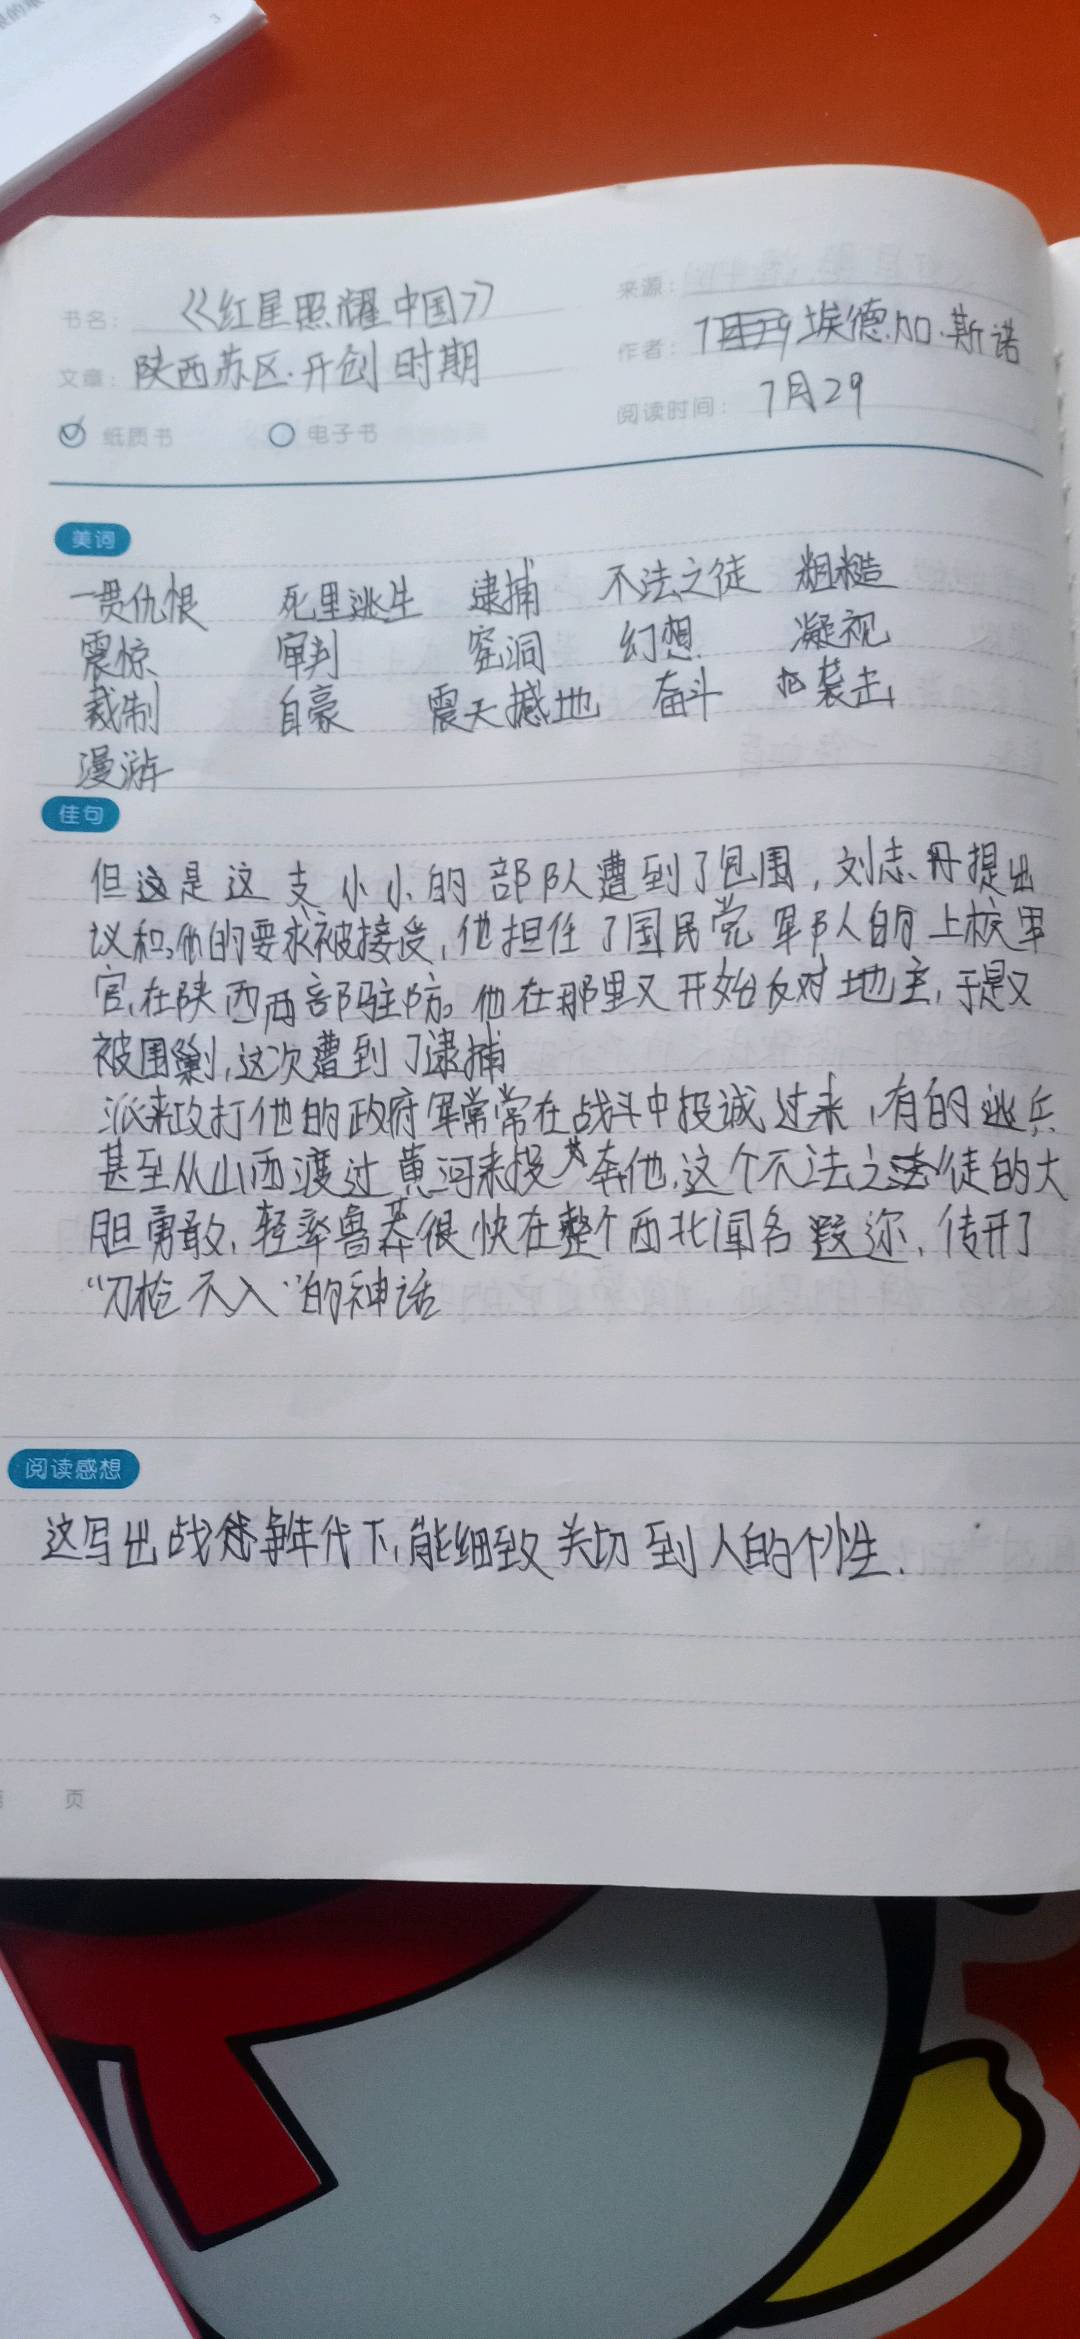 3
书名：《红星照耀中国》
来源：
文章：陕西苏区·开创时期
作者：埃德加·斯诺
纸质书 电子书
阅读时间：7月29
美词
一贯仇恨 死里逃生 逮捕 不法之徒 粗糙
震惊 审判 窑洞 幻想 凝视
裁制 自豪 震天撼地 奋斗 袭击
漫游
佳句
但是这支小小的部队遭到了包围，刘志丹提出
议和，他的要求被接受，他担任了国民党军队的上校军
官，在陕西西部驻防。他在那里又开始反对地主，于是又
被围剿，这次遭到了逮捕
派来攻打他的政府军常常在战斗中投诚过来，有的逃兵
甚至从山西渡过黄河来投奔他，这个不法之徒的大
胆勇敢，轻率鲁莽很快在整个西北闻名遐迩，传开了
“刀枪不入”的神话
阅读感想
这写出战争年代下，能细致关切到人的个性.
页